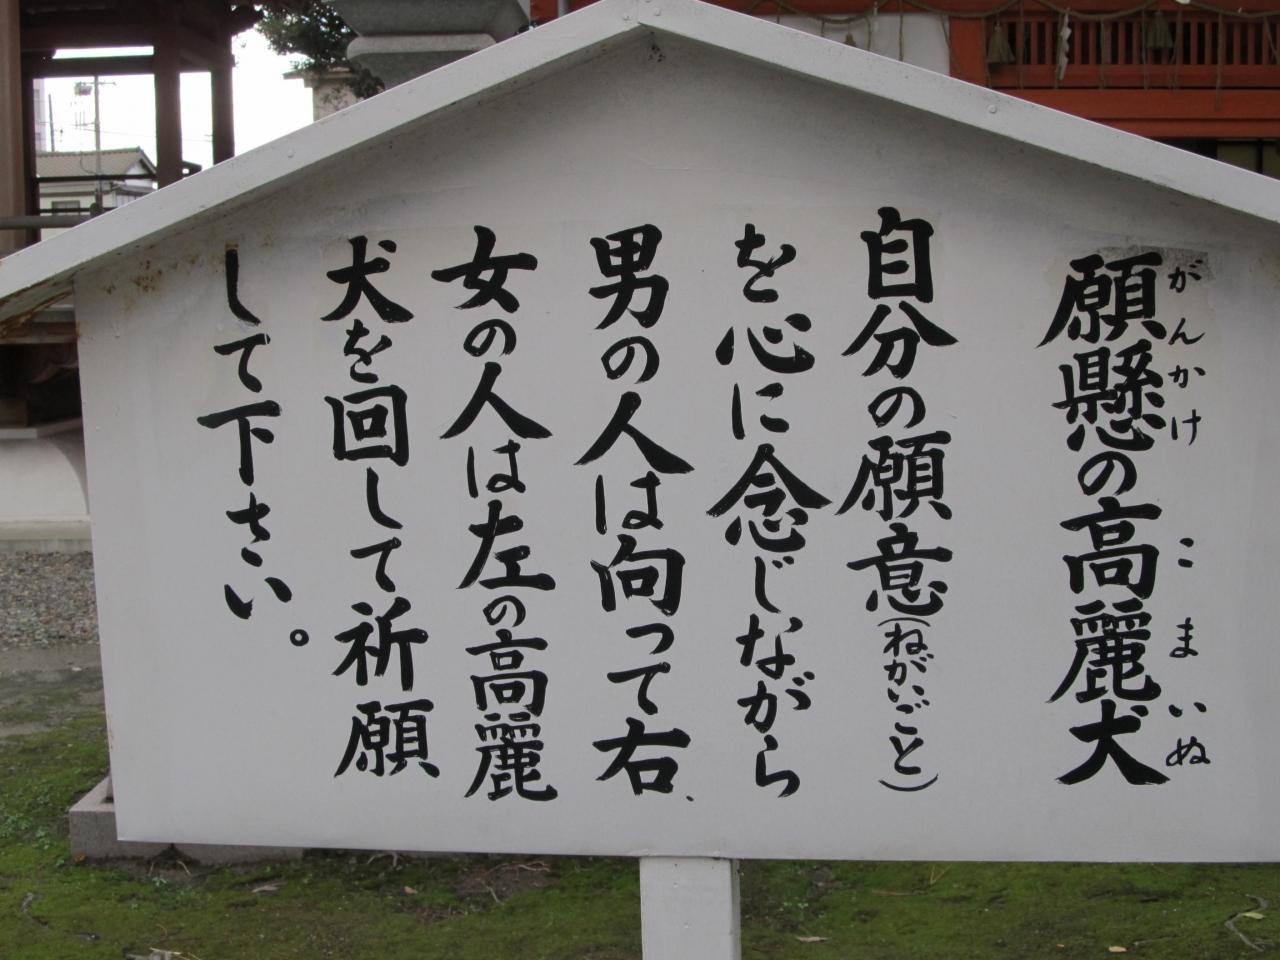 願懸の高麗犬
がんかけ こまいぬ
自分の願意(ねがいごと)
を心に念じながら
男の人は向って右、
女の人は左の高麗
犬を回して祈願
して下さい。